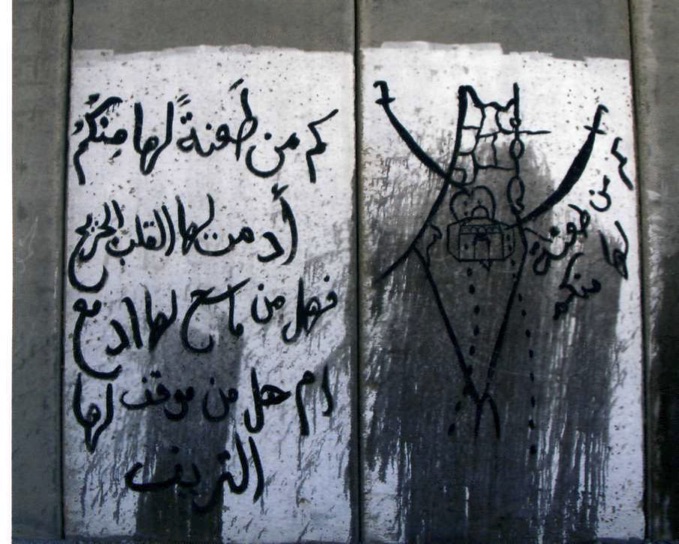 كم من طَعنةً لها مِنكُمُ
أدمت لها القلب الجريح
فهل من ماسح لها ادمع
ام هل من موقف لها
النزيف
كم من طعنة
لها منكم